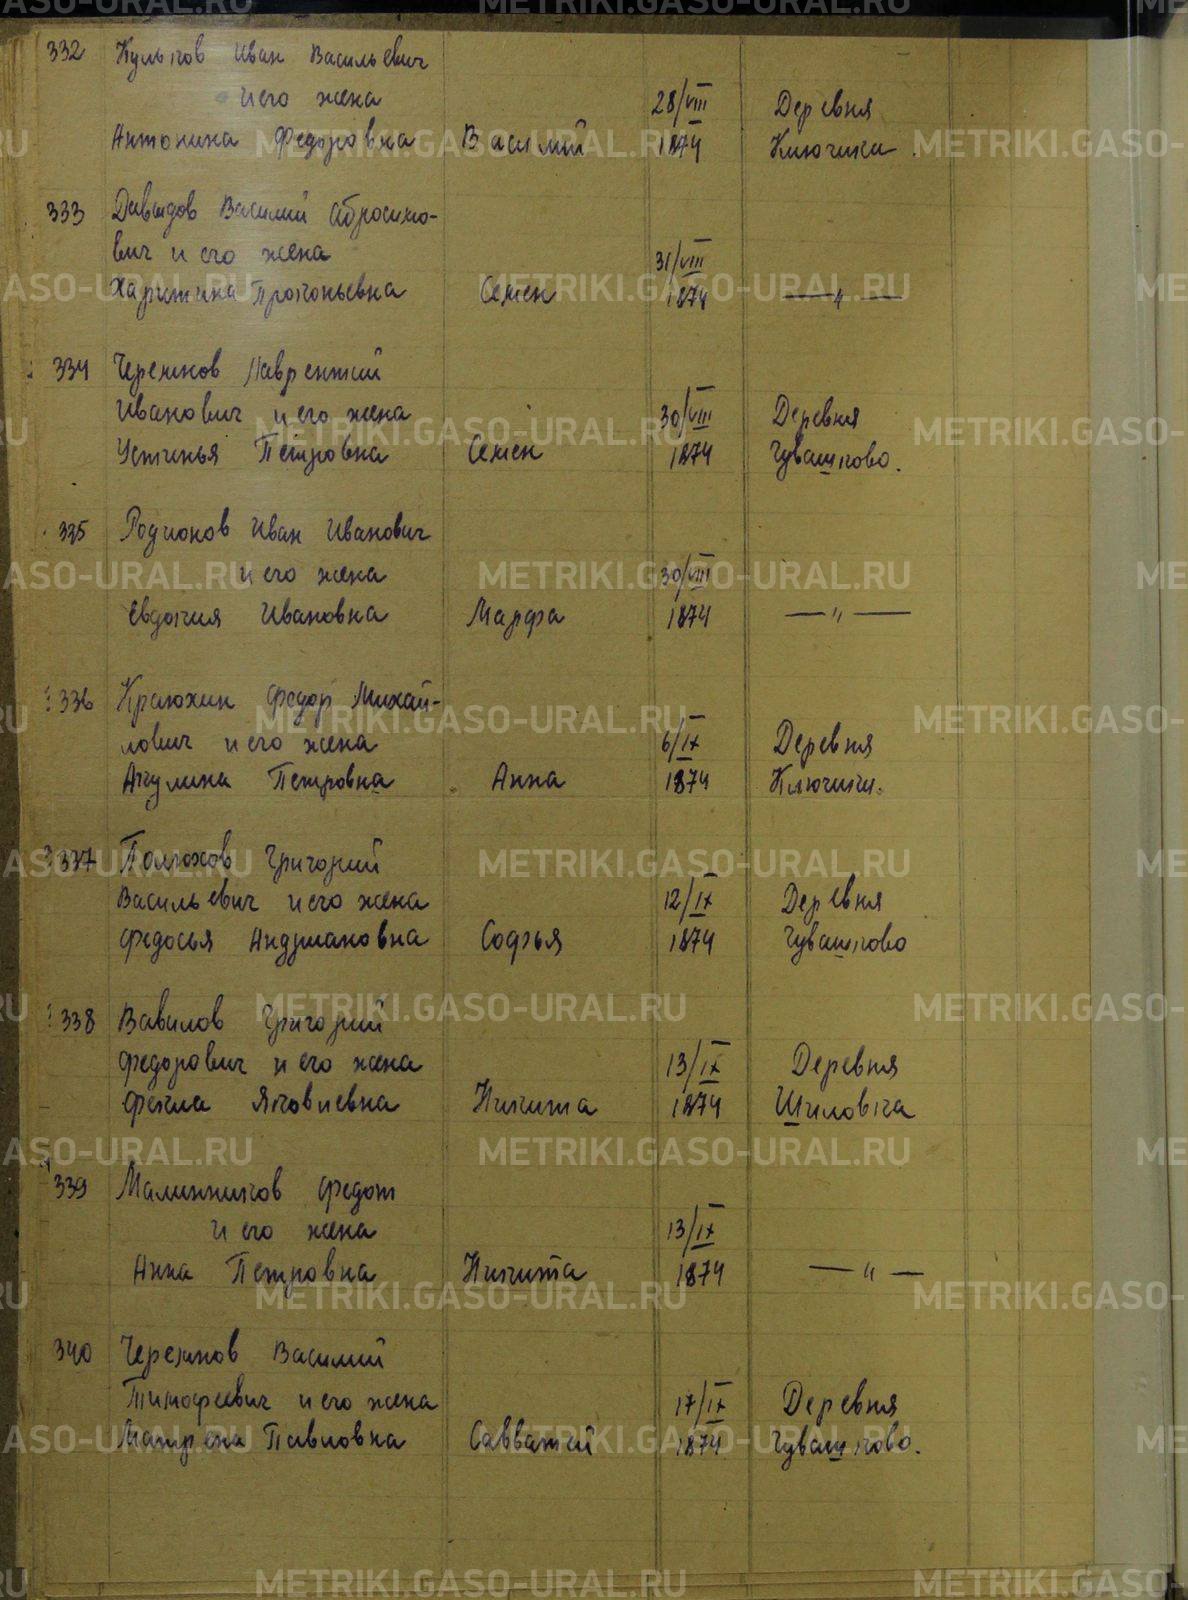 332 Кульков Иван Васильевич
и его жена 28/VIII Деревня
Антонина Федоровна Василий 1874 Ключики.
333 Давыдов Василий Абросимо-
вич и его жена 31/VIII
Харитина Прокопьевна Семен 1874 —"—
334 Черемнов Лаврентий
Иванович и его жена 30/VIII Деревня
Устинья Петровна Семен 1874 Чувашково.
335 Родионов Иван Иванович
и его жена 30/VIII
Евдокия Ивановна Марфа 1874 —"—
336 Краюхин Федор Михай-
лович и его жена 6/IX Деревня
Акулина Петровна Анна 1874 Ключики.
337 Григорий
Васильевич и его жена 12/IX Деревня
Федосья Андриановна Софья 1874 Чувашково
338 Вавилов Григорий
Федорович и его жена 13/IX Деревня
Фекла Яковлевна Никита 1874 Шиловка
339 Малинников Федот
и его жена 13/IX
Анна Петровна Никита 1874 —"—
340 Черемнов Василий
Тимофеевич и его жена 17/IX Деревня
Матрена Павловна Савватий 1874 Чувашково.
METRIKI.GASO-URAL.RU